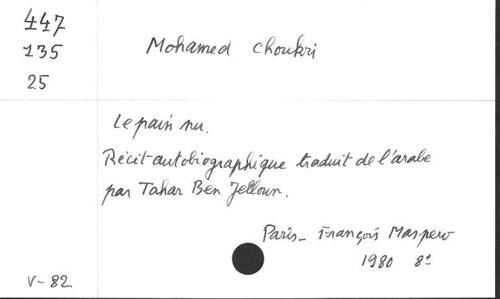 447
135
25
Mohamed Choukri
Le pain nu.
Récit autobiographique traduit de l'arabe
par Tahar Ben Jelloun.
Paris - François Maspero
1980 8°
V-82